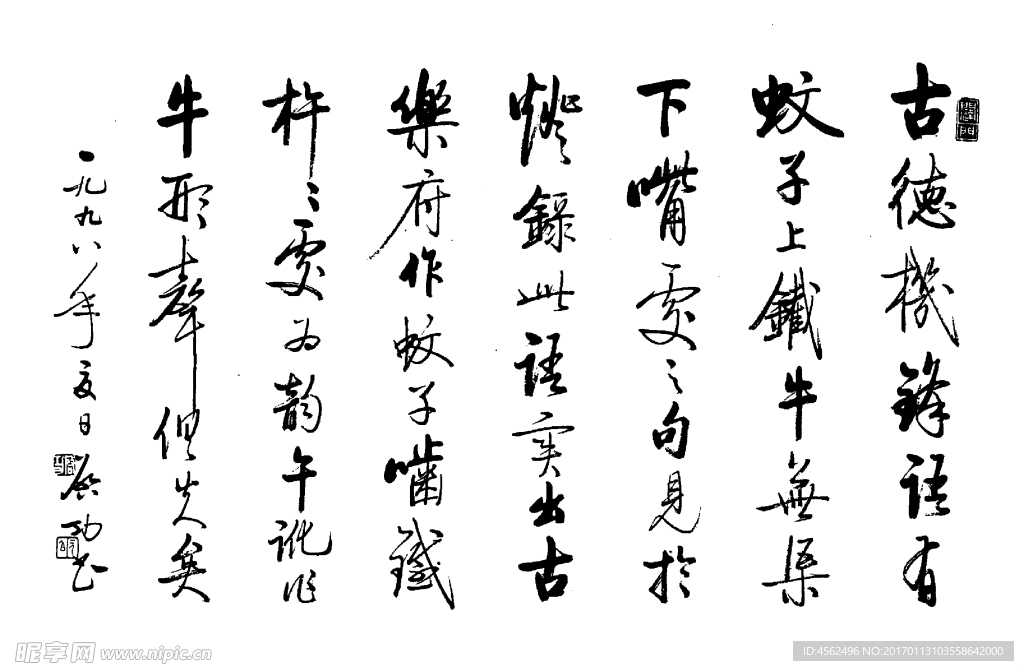 古德機鋒語有
蚊子上鐵牛無渠
下嘴處之句見於
燈錄此語実出古
樂府作蚊子嚙鐵
杵〻處為韵午訛作
牛形聲俱失矣
一九九八年夏日
啟功書
昵享网 www.nipic.cn
ID:4562496 NO:20170113103558642000